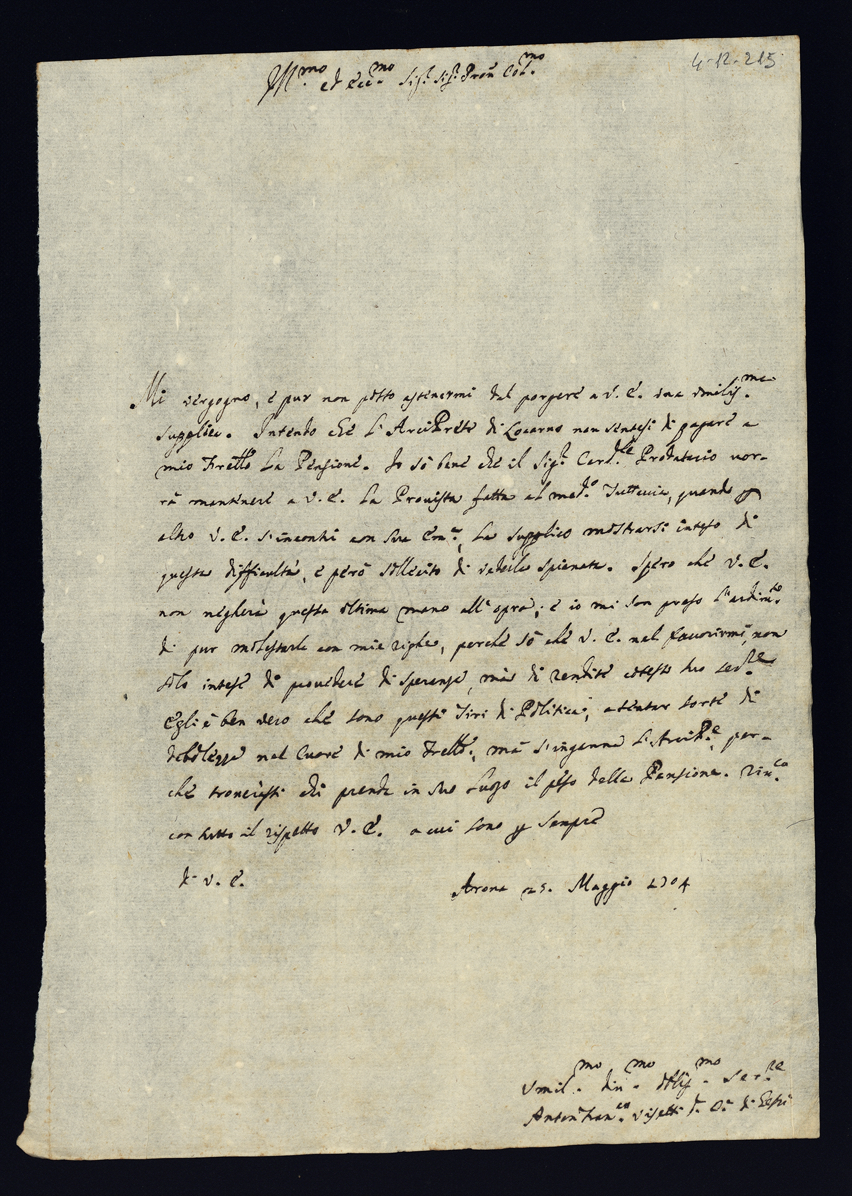 4-12-215
Ill.mo et Ecc.mo Sig.r Sig.r Pron Col.mo
Mi vergogno, è pur non posso astenermi dal porgere a V. E. una umiliss.ma
supplica. Intendo che l'Arciprete di Locarno non sentesi di pagare a
mio Fratello la Pensione. Io sò bene che il Sig.r Card.le Prodatario vor-
rà mantinere a V. E. la Provista fatta al med.o Tuttavia, quando
altro V. E. s'incontri con Sua Em.a, la supplico mostrarsi inteso di
questa difficultà, è però sollecito di vederla spianata. Spero che V. E.
non negherà questa ultima mano all'opra; è io mi son preso l'ardim.to
di pur molestarla con mie righe, perche sò che V. E. nel favorirmi, non
solo intese di provedere di speranze, mà di rendite cotesto suo ser.re
Egli è ben vero che sono questi tiri di Politica, a tentar sorte di
debolezza nel Cuore di mio Fratello, mà s'inganna l'Arcip.e, per-
che troverassi chi prenda in suo luogo il peso della Pensione. Riu.co
con tutto il rispetto V. E. a cui sono p sempre
di V. E.
Arona 25. Maggio 1704
Umil.mo Div.mo Oblig.mo Ser.re
Anton Fran.co